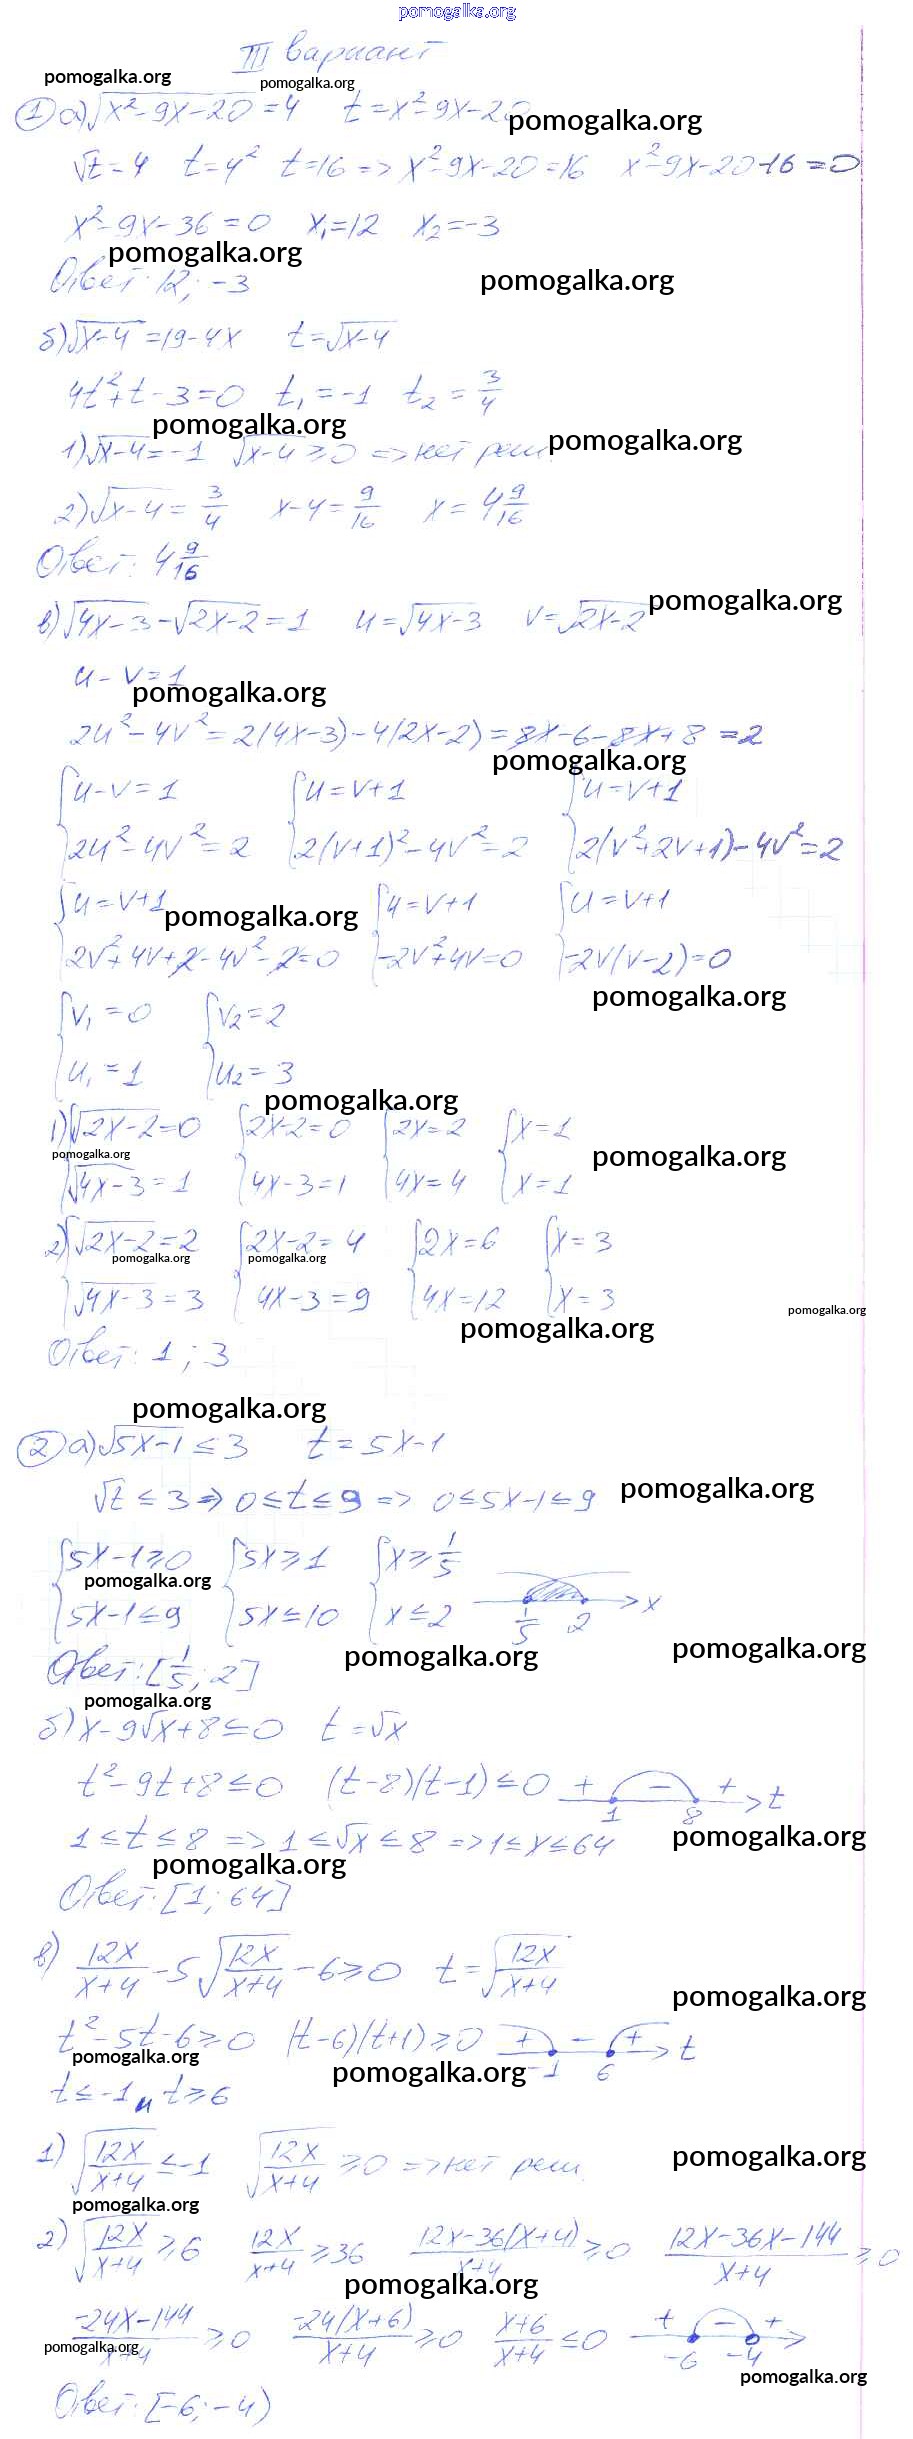 pomogalka.org
III вариант
pomogalka.org pomogalka.org
① а) √(x²-9x-20) = 4   t = x²-9x-20
pomogalka.org
√t = 4   t = 4²   t = 16 => x²-9x-20 = 16   x²-9x-20-16 = 0
x²-9x-36 = 0   x₁ = 12   x₂ = -3
pomogalka.org
Ответ: 12; -3
pomogalka.org
б) √(x-4) = 19-4x   t = √(x-4)
4t²+t-3 = 0   t₁ = -1   t₂ = 3/4
pomogalka.org pomogalka.org
1) √(x-4) = -1   √(x-4) ≥ 0 => нет реш.
2) √(x-4) = 3/4   x-4 = 9/16   x = 4 9/16
Ответ: 4 9/16
в) √(4x-3) - √(2x-2) = 1   u = √(4x-3)   v = √(2x-2)
pomogalka.org
u - v = 1
pomogalka.org
2u²-4v² = 2(4x-3)-4(2x-2) = 8x-6-8x+8 = 2
pomogalka.org
{u-v = 1   {u = v+1   {u = v+1
{2u²-4v² = 2   {2(v+1)²-4v² = 2   {2(v²+2v+1)-4v² = 2
{u = v+1   {u = v+1   {u = v+1
pomogalka.org
{2v²+4v+2-4v²-2 = 0   {-2v²+4v = 0   {-2v(v-2) = 0
pomogalka.org
{v₁ = 0   {v₂ = 2
{u₁ = 1   {u₂ = 3
pomogalka.org
1) {√(2x-2) = 0   {2x-2 = 0   {2x = 2   {x = 1
pomogalka.org pomogalka.org
{√(4x-3) = 1   {4x-3 = 1   {4x = 4   {x = 1
2) {√(2x-2) = 2   {2x-2 = 4   {2x = 6   {x = 3
pomogalka.org pomogalka.org
{√(4x-3) = 3   {4x-3 = 9   {4x = 12   {x = 3
pomogalka.org
pomogalka.org
Ответ: 1; 3
pomogalka.org
② а) √(5x-1) ≤ 3   t = 5x-1
√t ≤ 3 => 0 ≤ t ≤ 9 => 0 ≤ 5x-1 ≤ 9
pomogalka.org
{5x-1 ≥ 0   {5x ≥ 1   {x ≥ 1/5
pomogalka.org
{5x-1 ≤ 9   {5x ≤ 10   {x ≤ 2   1/5   2   x
pomogalka.org pomogalka.org
Ответ: [1/5; 2]
pomogalka.org
б) x-9√x+8 ≤ 0   t = √x
t²-9t+8 ≤ 0   (t-8)(t-1) ≤ 0   + - +   1   8   t
1 ≤ t ≤ 8 => 1 ≤ √x ≤ 8 => 1 ≤ x ≤ 64
pomogalka.org
pomogalka.org
Ответ: [1; 64]
в) 12x/(x+4) - 5√(12x/(x+4)) - 6 ≥ 0   t = √(12x/(x+4))
pomogalka.org
t²-5t-6 ≥ 0   (t-6)(t+1) ≥ 0   + - +   -1   6   t
pomogalka.org pomogalka.org
t ≤ -1 и t ≥ 6
1) √(12x/(x+4)) ≤ -1   √(12x/(x+4)) ≥ 0 => нет реш.
pomogalka.org
pomogalka.org
2) √(12x/(x+4)) ≥ 6   12x/(x+4) ≥ 36   (12x-36(x+4))/(x+4) ≥ 0   (12x-36x-144)/(x+4) ≥ 0
pomogalka.org
(-24x-144)/(x+4) ≥ 0   -24(x+6)/(x+4) ≥ 0   (x+6)/(x+4) ≤ 0   + - +   -6   -4
pomogalka.org
pomogalka.org
Ответ: [-6; -4)